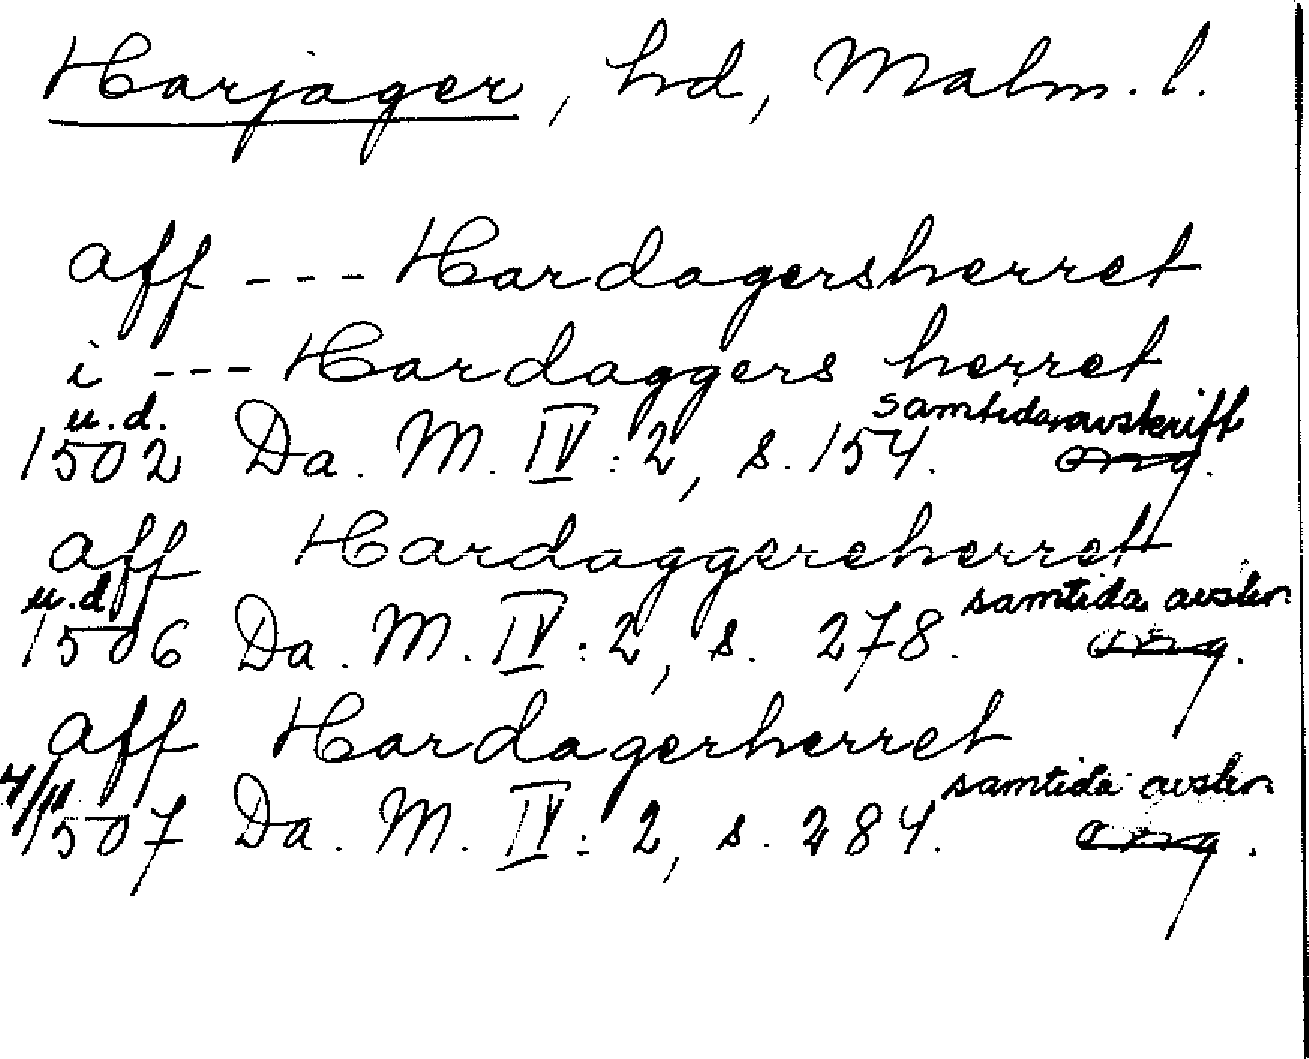 Harjager, hd, Malm. l.
aff --- Hardagersherret
i --- Hardaggers herret
u.d. samtida avskrift
1502 Da. M. IV: 2, s. 154. org.
aff Hardaggereherret
u.d. samtida avskr
1506 Da. M. IV: 2, s. 278. org.
aff Hardagerherret
4/11 samtida avskr
1507 Da. M. IV: 2, s. 284. org.